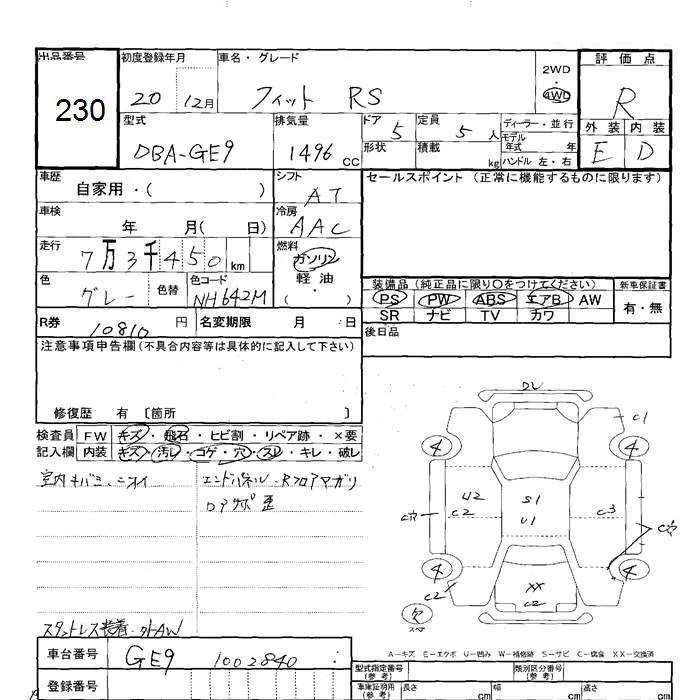 出品番号 230
初度登録年月 20 12月
車名・グレード フィット RS
2WD
4WD
評価点 R
外装 内装
E D
型式 DBA-GE9
排気量 1496 cc
ドア 5
形状
定員 5 人
積載 kg
ディーラー・並行
モデル年式 年
ハンドル 左・右
車歴 自家用・( )
シフト AT
セールスポイント (正常に機能するものに限ります)
車検 年 月( 日)
冷房 AAC
走行 7万3千450km
燃料 ガソリン
軽油
( )
色 グレー 色替
色コード NH642M
装備品 (純正品に限り○をつけてください)
新車保証書
PS PW ABS エアB AW
有・無
SR ナビ TV カワ
R券 10810 円 名変期限 月 日
後日品
注意事項申告欄 (不具合内容等は具体的に記入して下さい)
修復歴 有 〔箇所 〕
検査員 FW キズ・飛石・ヒビ割・リペア跡・×要
記入欄 内装 キズ・汚レ・コゲ・穴・スレ・キレ・破レ
室内キバミ、ニオイ
エンドパネル・Rフロアマガリ
スタットレス装着・外AW
DL
C1
4 4
U2
C2
S1
U1
C3
C穴
C穴
4 4
C2
XX
C2
欠
スペア
A-キズ E-エクボ U-凹み W-補修跡 S-サビ C-腐食 XX-交換済
車台番号 GE9 1002840
登録番号
型式指定番号
(参考)
類別区分番号
(参考)
車庫証明用
(参考)
長さ cm 幅 cm 高さ cm